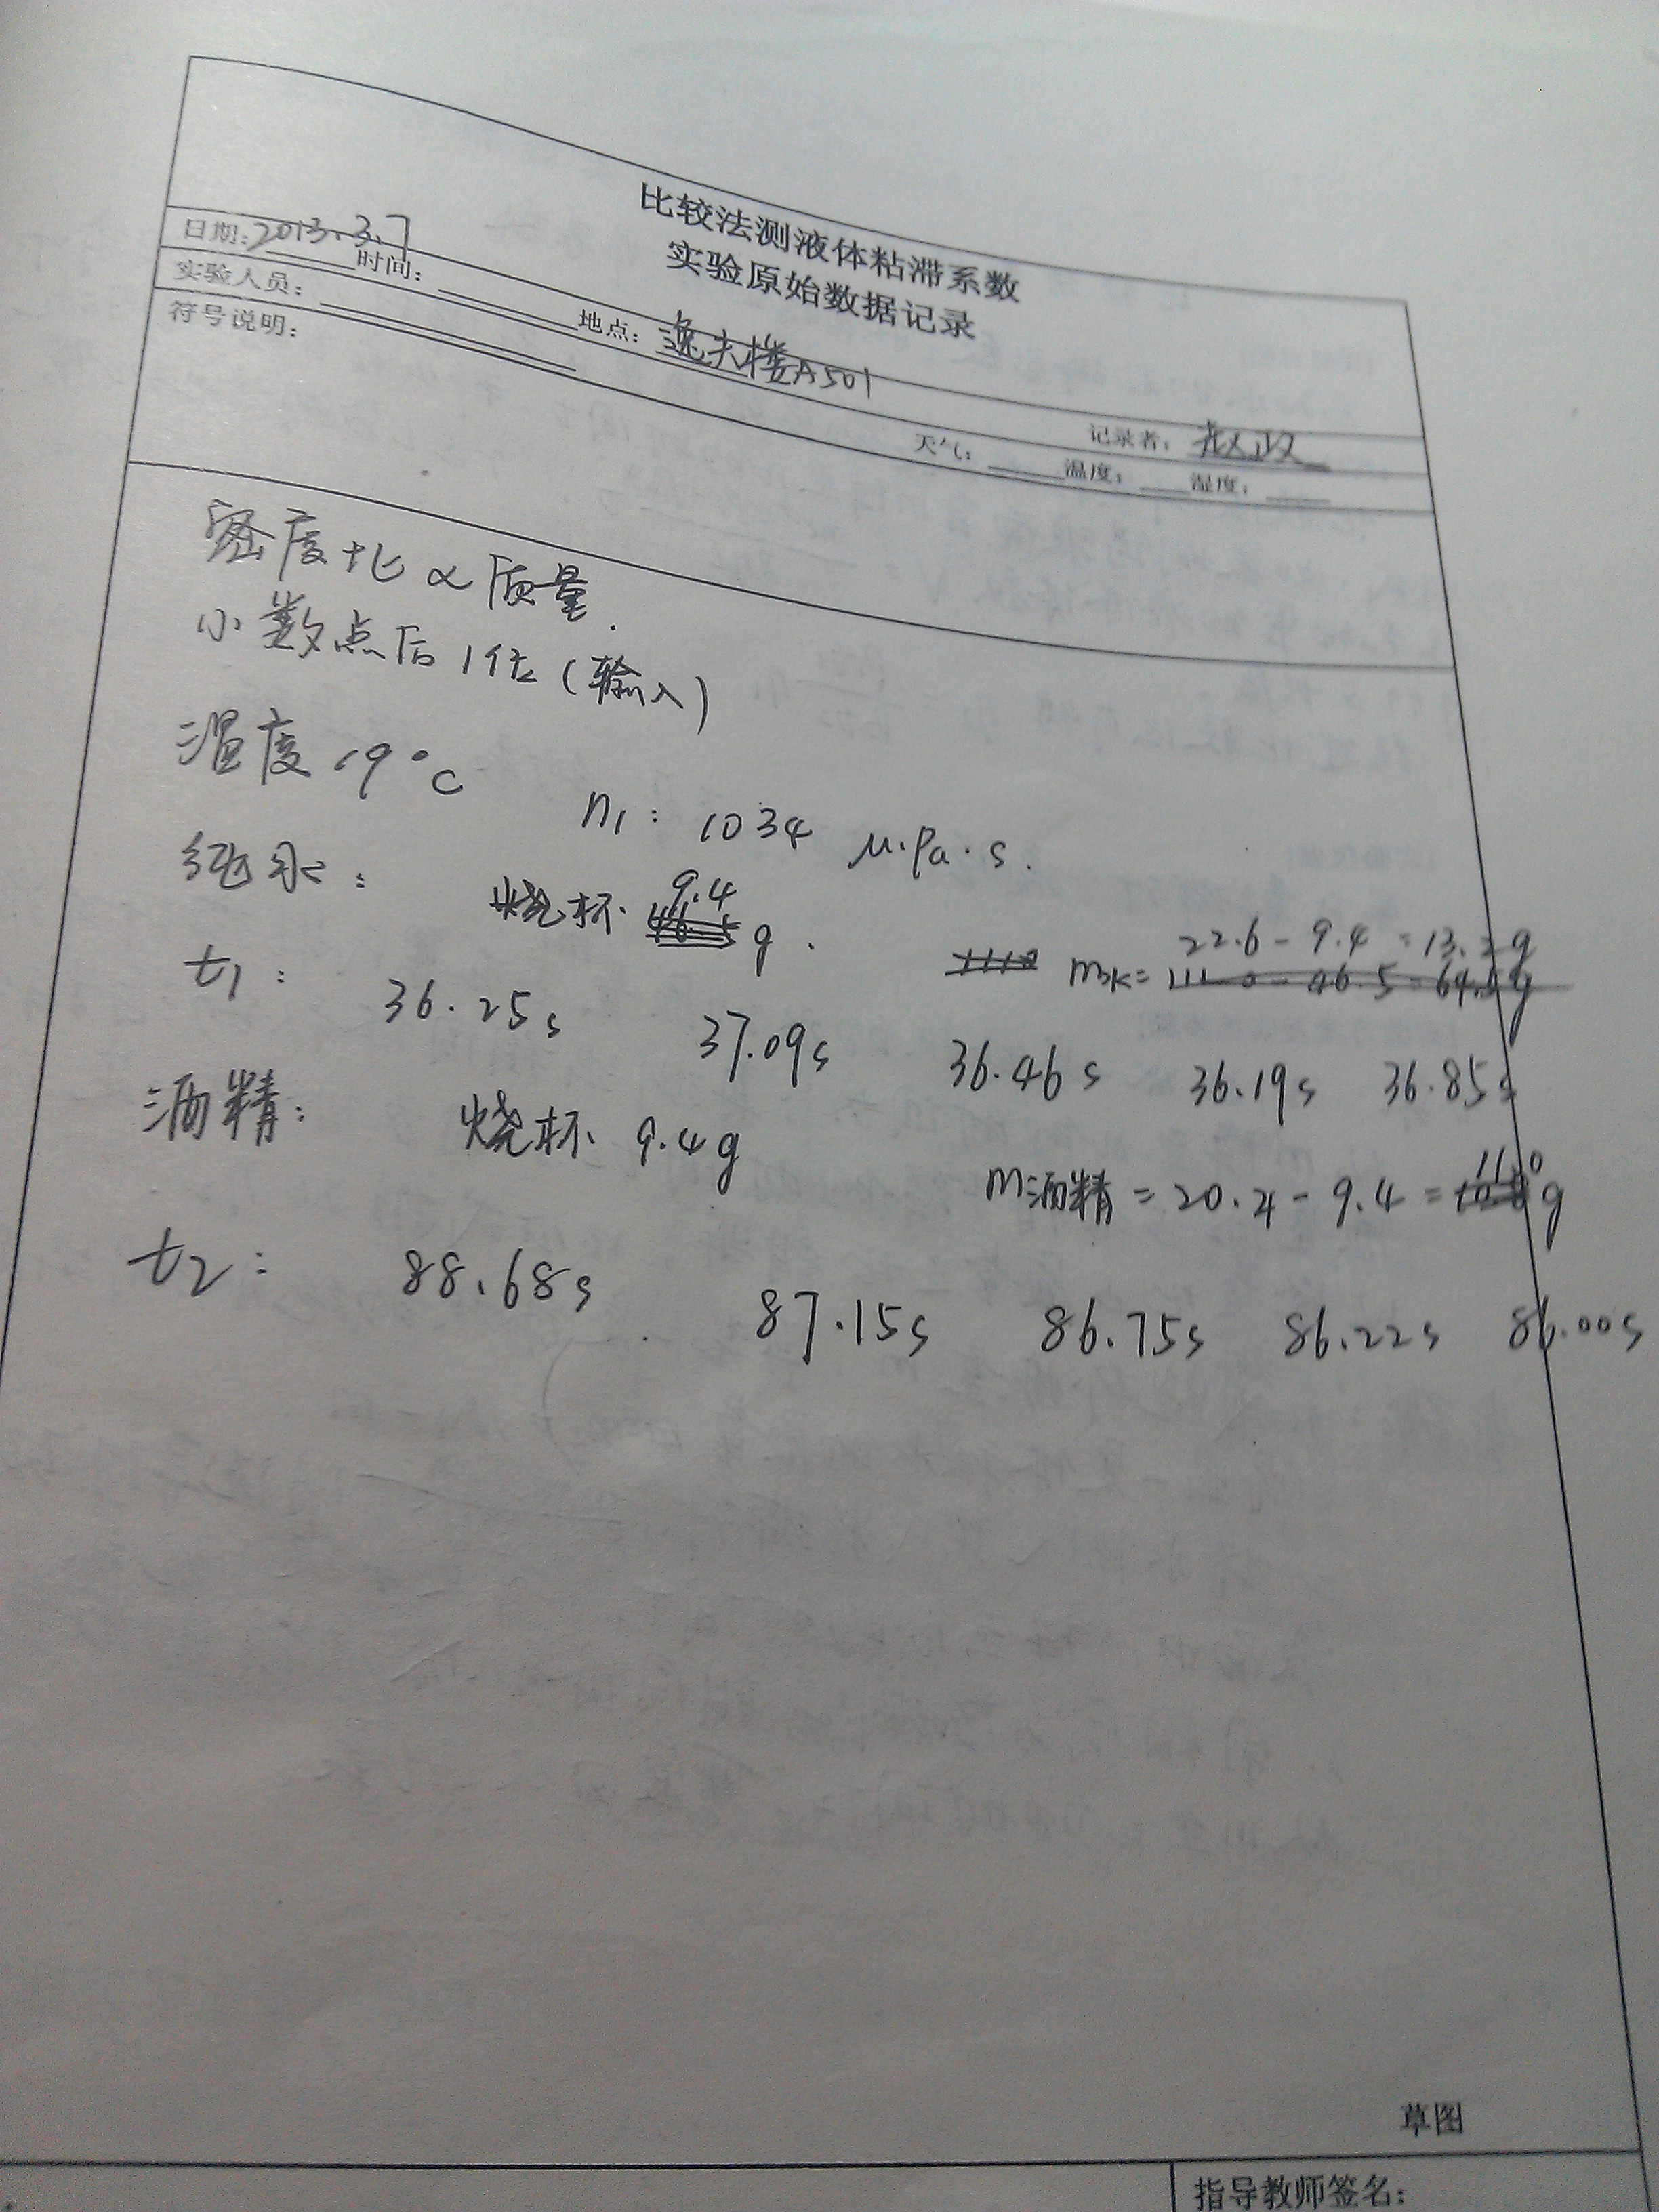 比较法测液体粘滞系数
实验原始数据记录
日期:2013.3.7 时间: 地点: 逸夫楼A501 记录者: 赵政
实验人员: 天气: 温度: 湿度:
符号说明:
密度比 ∝ 质量.
小数点后1位(输入)
温度 19°C η1: 1034 μ·Pa·s.
纯水: 烧杯 9.4 g. m水= 22.6 - 9.4 = 13.2g
111.0 - 46.5 = 64.5g
t1: 36.25s 37.09s 36.46s 36.19s 36.85s
酒精: 烧杯 9.4g m酒精 = 20.4 - 9.4 = 11.0 g
t2: 88.68s 87.15s 86.75s 86.22s 86.00s
草图
指导教师签名: